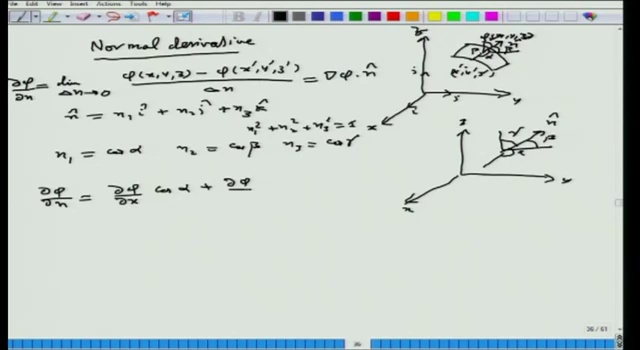 File Edit View Insert Actions Tools Help
Normal derivative
∂φ/∂n = lim Δn→0 (φ(x,y,z) − φ(x′,y′,z′))/Δn = ∇φ·n̂
n̂ = n₁ î + n₂ ĵ + n₃ k̂
n₁² + n₂² + n₃² = 1
n₁ = cos α n₂ = cos β n₃ = cos γ
∂φ/∂n = ∂φ/∂x cos α + ∂φ
z
y
x
P(x,y,z)
(x′,y′,z′)
z
y
x
n̂
γ
β
α
36 / 61
36